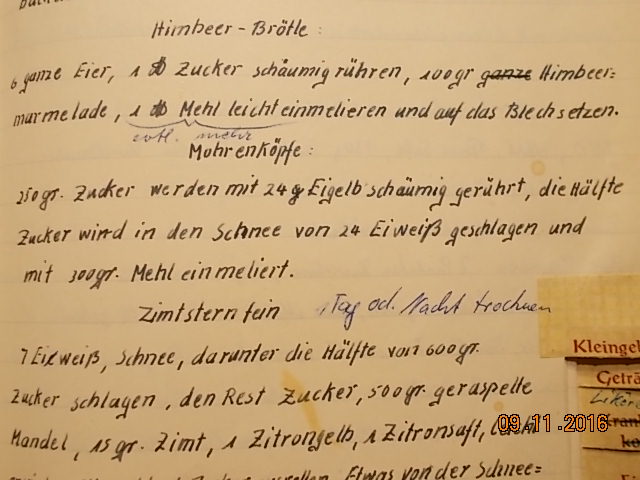 Himbeer-Brötle:
6 ganze Eier, 1 ℔ Zucker schäumig rühren, 100gr ganze Himbeer=
marmelade, 1 ℔ Mehl leicht einmelieren und auf das Blech setzen.
evtl. mehr
Mohrenköpfe:
250gr. Zucker werden mit 24 Eigelb schäumig gerührt, die Hälfte
Zucker wird in den Schnee von 24 Eiweiß geschlagen und
mit 300gr. Mehl einmeliert.
Zimtstern fein 1 Tag od. Nacht trocknen
7 Eiweiß, Schnee, darunter die Hälfte von 600gr.
Zucker schlagen, den Rest Zucker, 500gr. geraspelte
Mandel, 15gr. Zimt, 1 Zitrongelb, 1 Zitronsaft, leicht
Etwas von der Schnee=
Kleingeb
Geträ
Likör
Krank
09.11.2016